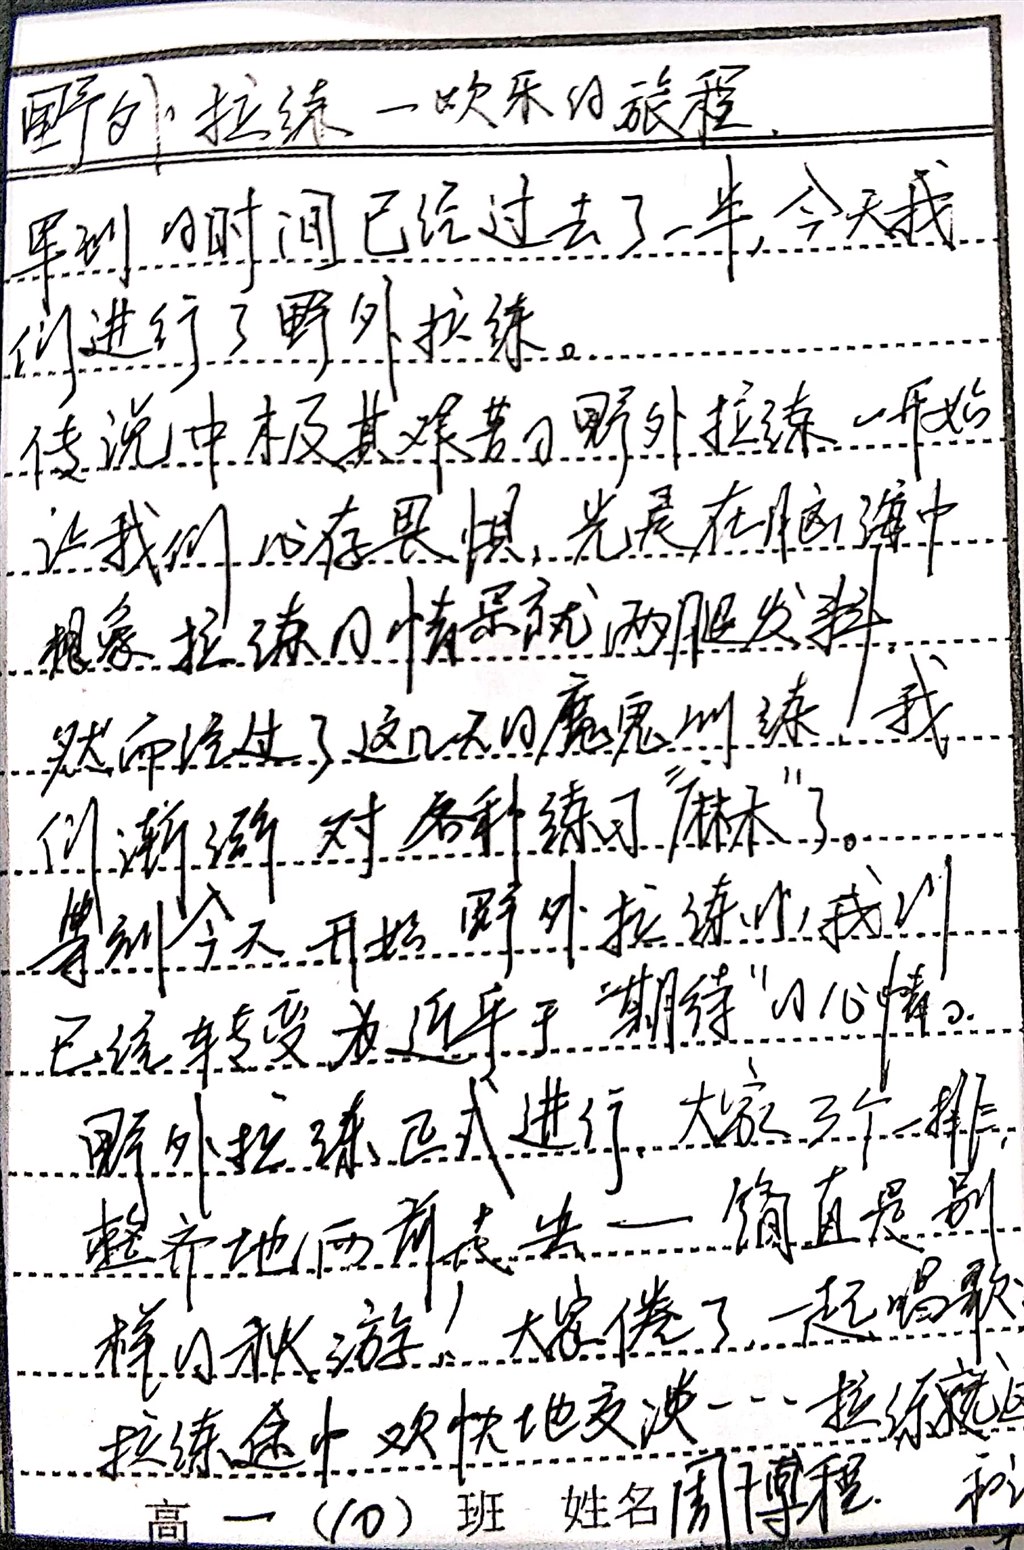 野外拉练—欢乐的旅程.
军训的时间已经过去了一半,今天我
们进行了野外拉练。
传说中极其艰苦的野外拉练一开始
让我们心存畏惧,光是在脑海中
想象拉练的情景就两腿发抖,
然而经过了这几天的魔鬼训练,我
们渐渐对各种练习"麻木"了。
等到今天开始野外拉练时,我们
已经转变为近乎于"期待"的心情。
野外拉练正式进行,大家三个一排,
整齐地向前走去——简直是别
样的秋游!大家倦了,一起唱歌;
拉练途中欢快地交谈……拉练就这
高一(10)班 姓名周博程.